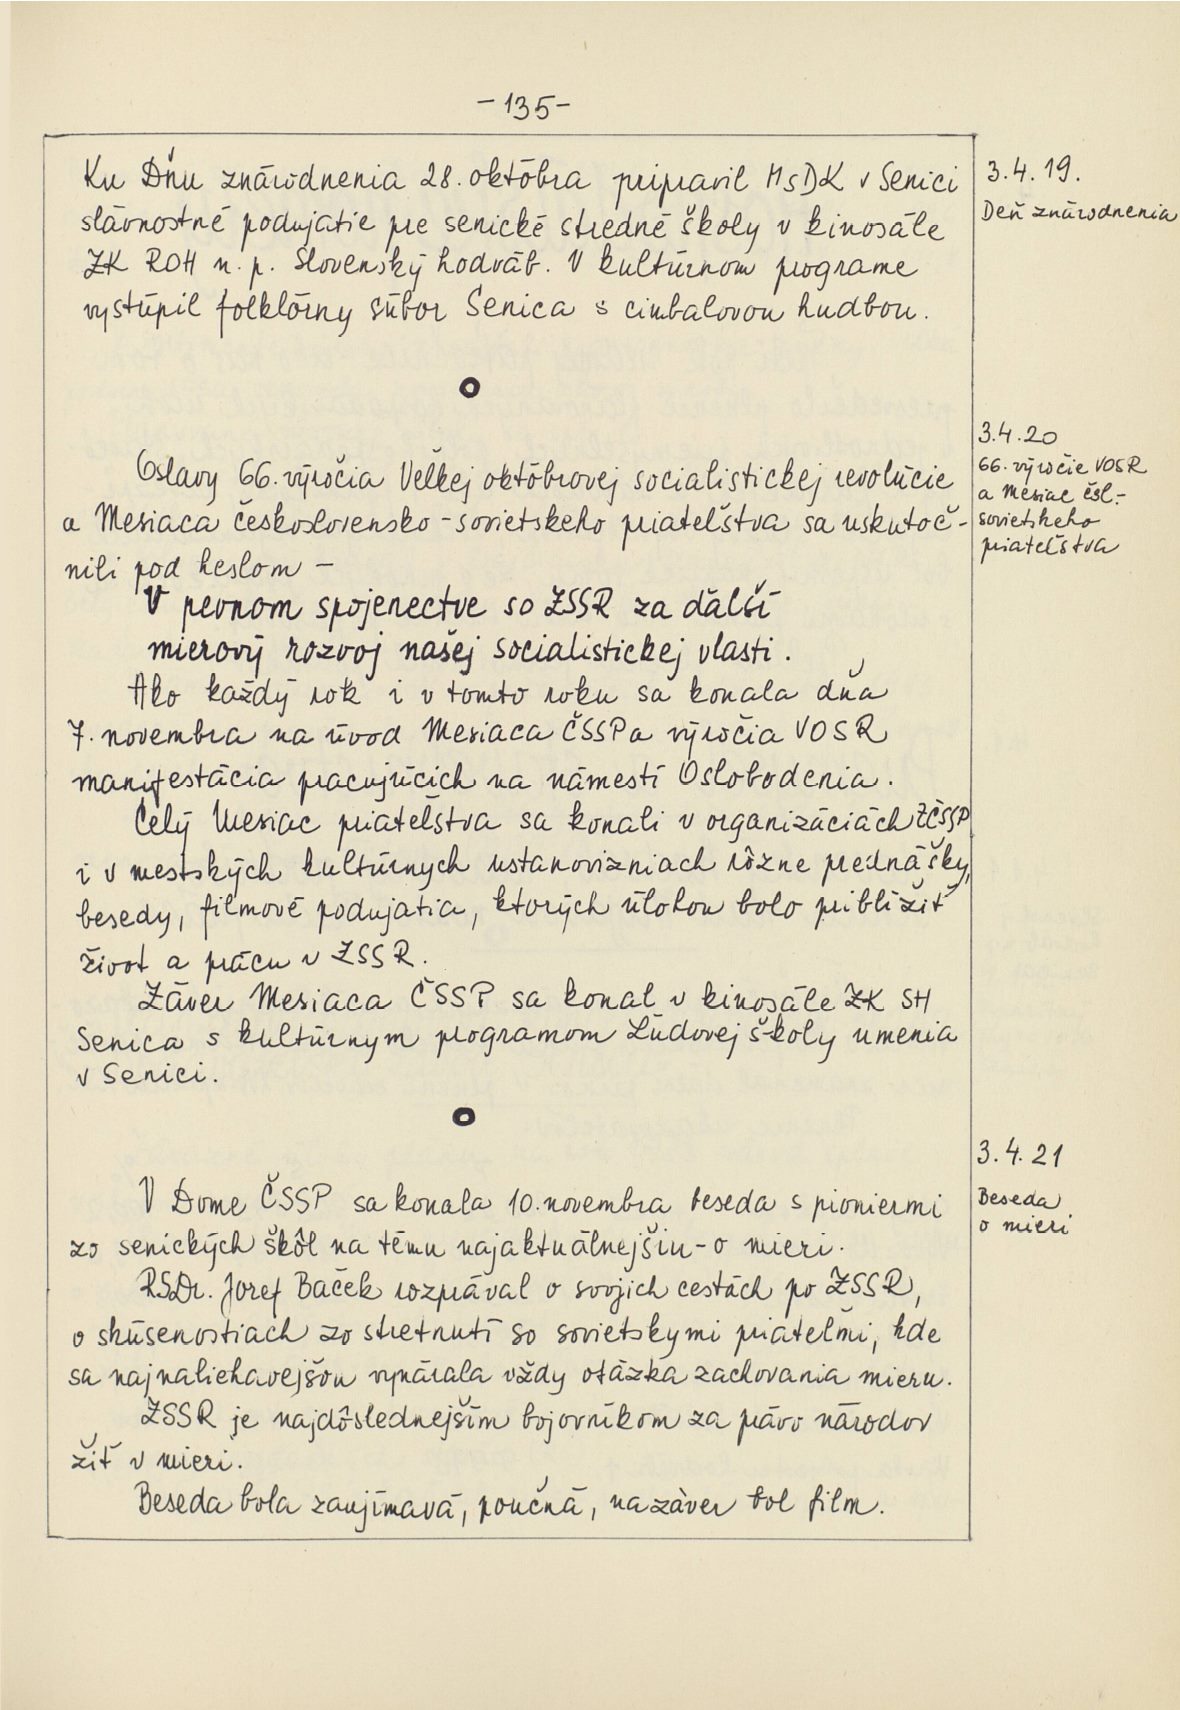 -135-
Ku Dňu znárodnenia 28. októbra pripravil MsDK v Senici
slávnostné podujatie pre senické stredné školy v kinosále
ZK ROH n. p. Slovenský hodváb. V kultúrnom programe
vystúpil folklórny súbor Senica s cimbalovou hudbou.
3.4.19.
Deň znárodnenia
Oslavy 66. výročia Veľkej októbrovej socialistickej revolúcie
a Mesiaca československo-sovietskeho priateľstva sa uskutoč-
nili pod heslom -
V pevnom spojenectve so ZSSR za ďalší
mierový rozvoj našej socialistickej vlasti.
Ako každý rok i v tomto roku sa konala dňa
7. novembra na úvod Mesiaca ČSSP a výročia VOSR
manifestácia pracujúcich na námestí Oslobodenia.
Celý Mesiac priateľstva sa konali v organizáciách ZČSSP
i v mestských kultúrnych ustanovizniach rôzne prednášky,
besedy, filmové podujatia, ktorých úlohou bolo priblížiť
život a prácu v ZSSR.
Záver Mesiaca ČSSP sa konal v kinosále ZK SH
Senica s kultúrnym programom Ľudovej školy umenia
v Senici.
3.4.20
66. výročie VOSR
a Mesiac čsl.-
sovietskeho
priateľstva
V Dome ČSSP sa konala 10. novembra beseda s pioniermi
zo senických škôl na tému najaktuálnejšiu - o mieri.
RSDr. Jozef Baček rozprával o svojich cestách po ZSSR,
o skúsenostiach zo stretnutí so sovietskymi priateľmi, kde
sa najnaliehavejšou vynárala vždy otázka zachovania mieru.
ZSSR je najdôslednejším bojovníkom za právo národov
žiť v mieri.
Beseda bola zaujímavá, poučná, na záver bol film.
3.4.21
Beseda
o mieri